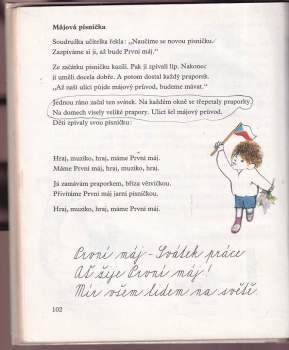 Májová písnička
Soudružka učitelka řekla: „Naučíme se novou písničku.
Zazpíváme si ji, až bude První máj."
Ze začátku písničku kazili. Pak ji zpívali líp. Nakonec
ji uměli docela dobře. A potom dostal každý praporek.
„Až naší ulicí půjde májový průvod, budeme mávat."
Jednou ráno začal ten svátek. Na každém okně se třepetaly praporky.
Na domech visely veliké prapory. Ulicí šel májový průvod.
Děti zpívaly svou písničku:
Hraj, muziko, hraj, máme První máj.
Máme První máj, hraj, muziko, hraj.
Já zamávám praporkem, bříza větvičkou.
Přivítáme První máj jarní písničkou.
Hraj, muziko, hraj, máme První máj.
První máj – Svátek práce
Ať žije První máj!
Mír všem lidem na světě.
102